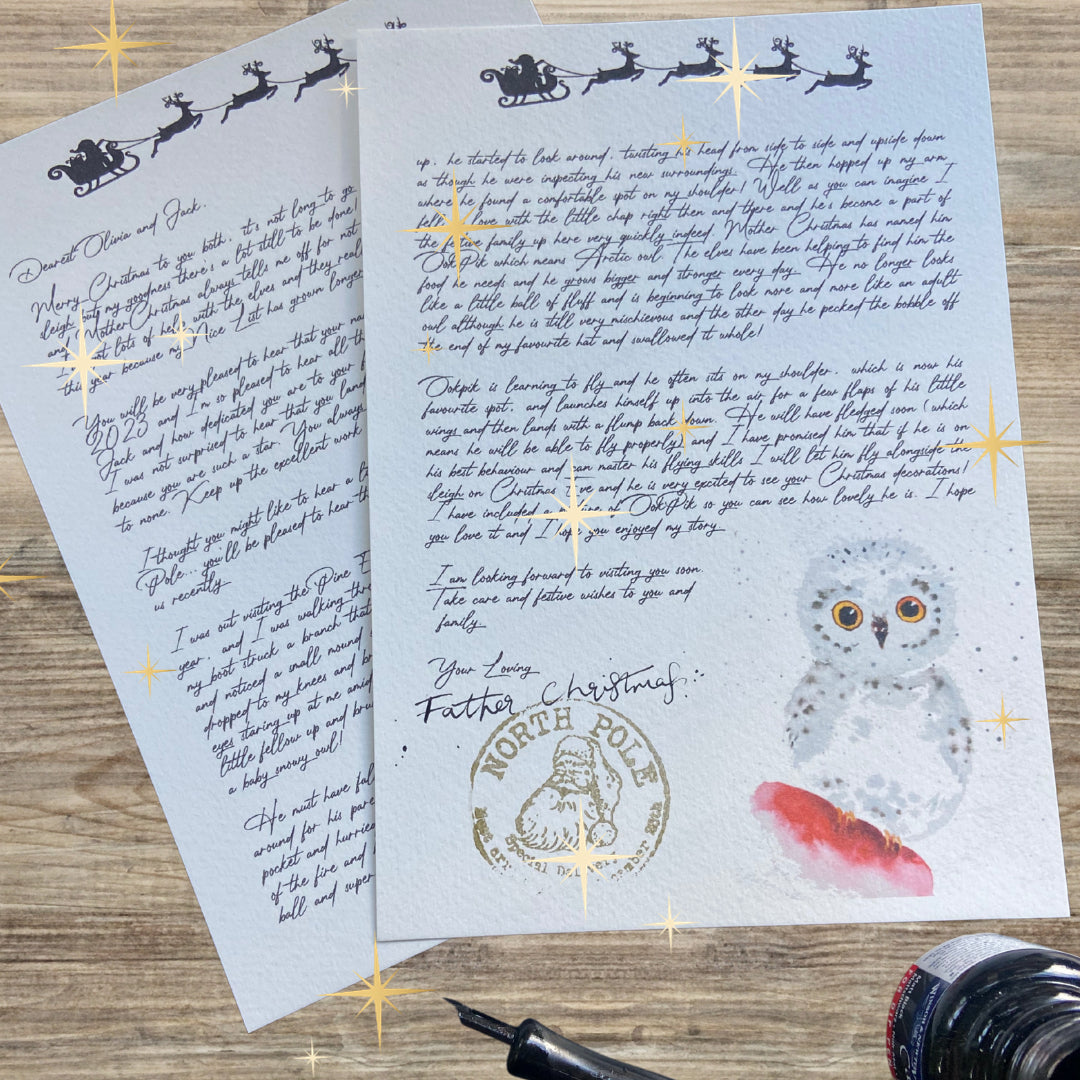 Dearest Olivia and Jack,
Merry Christmas to you both, it's not long to go
, but my goodness there's a lot still to be done!
and Mother Christmas always tells me off for not
lots of help with the elves and they
this year because my Nice List has grown longer
You will be very pleased to hear that your
2023 and I'm so pleased to hear all
Jack and how dedicated you are to your
I was not surprised to hear that you
because you are such a star. You always
to none. Keep up the excellent work
I thought you might like to hear a
Pole... you'll be pleased to hear
us recently
I was out visiting the Pine
year, and I was walking
my boot struck a branch that
and noticed a small mound
dropped to my knees and
eyes staring up at me
little fellow up and
a baby snowy owl!
He must have
around for his
pocket and
of the fire and
ball and
up, he started to look around, twisting his head from side to side and upside down
as though he were inspecting his new surroundings. He then hopped up my arm
where he found a comfortable spot on my shoulder! Well as you can imagine I
fell love with the little chap right then and there and he's become a part of
the festive family up here very quickly indeed. Mother Christmas has named him
OokPik which means Arctic owl. The elves have been helping to find him the
food he needs and he grows bigger and stronger every day. He no longer looks
like a little ball of fluff and is beginning to look more and more like an adult
owl although he is still very mischievous and the other day he pecked the bobble off
the end of my favourite hat and swallowed it whole!
Ookpik is learning to fly and he often sits on my shoulder, which is now his
favourite spot, and launches himself up into the air for a few flaps of his little
wings and then lands with a flump back down. He will have fledged soon (which
means he will be able to fly properly) and I have promised him that if he is on
his best behaviour and can master his flying skills I will let him fly alongside the
sleigh on Christmas Eve and he is very excited to see your Christmas decorations!
I have included a of OokPik so you can see how lovely he is. I hope
you love it and I hope you enjoyed my story
I am looking forward to visiting you soon.
Take care and festive wishes to you and
family.
Your Loving
Father Christmas
NORTH POLE
Special